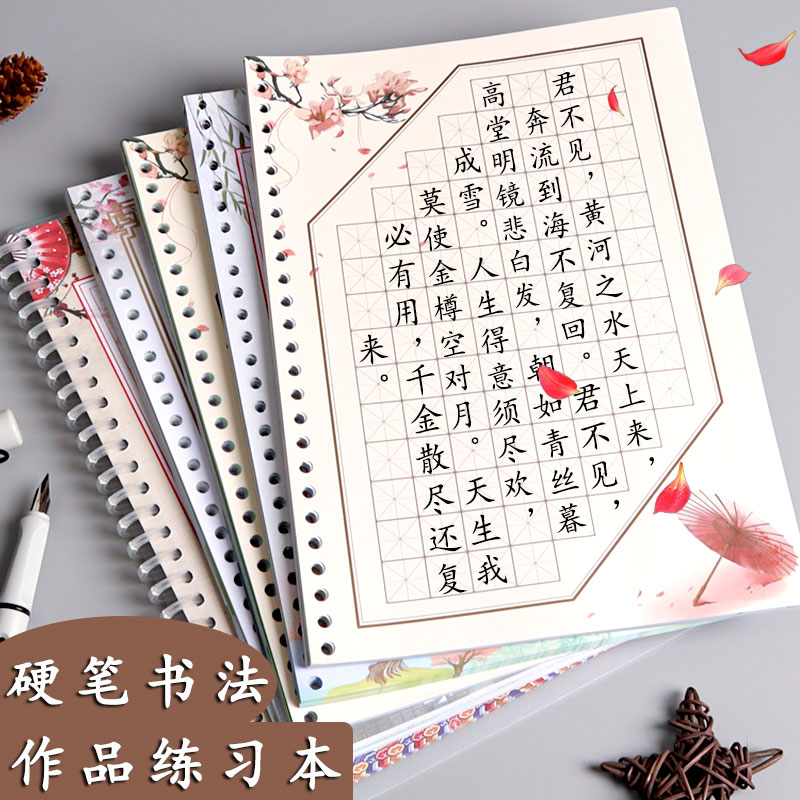 君不见,黄河之水天上来,
奔流到海不复回。君不见,
高堂明镜悲白发,朝如青丝暮
成雪。人生得意须尽欢,
莫使金樽空对月。天生我
必有用,千金散尽还复
来。
硬笔书法
作品练习本